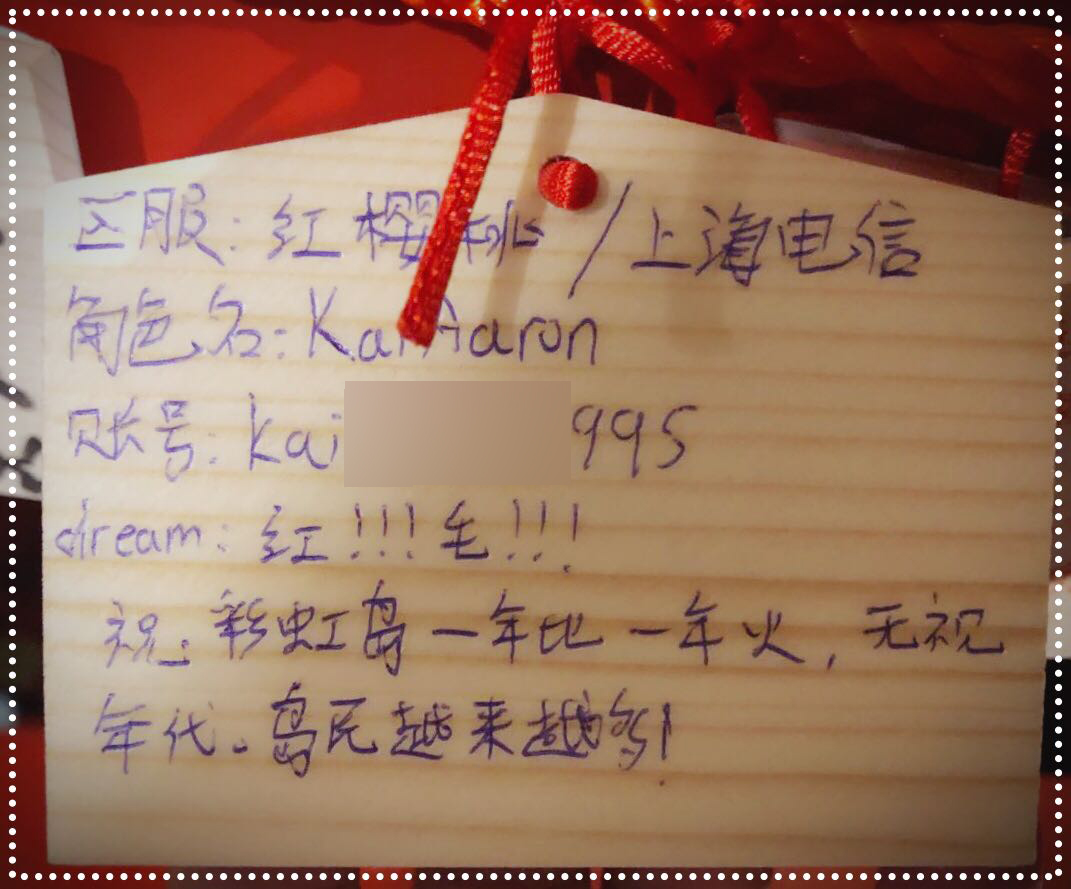 区服：红樱桃/上海电信
角色名：KaiAaron
账号：kai 995
dream：红！！！毛！！！
祝：彩虹岛一年比一年火，无视
年代。岛民越来越多！